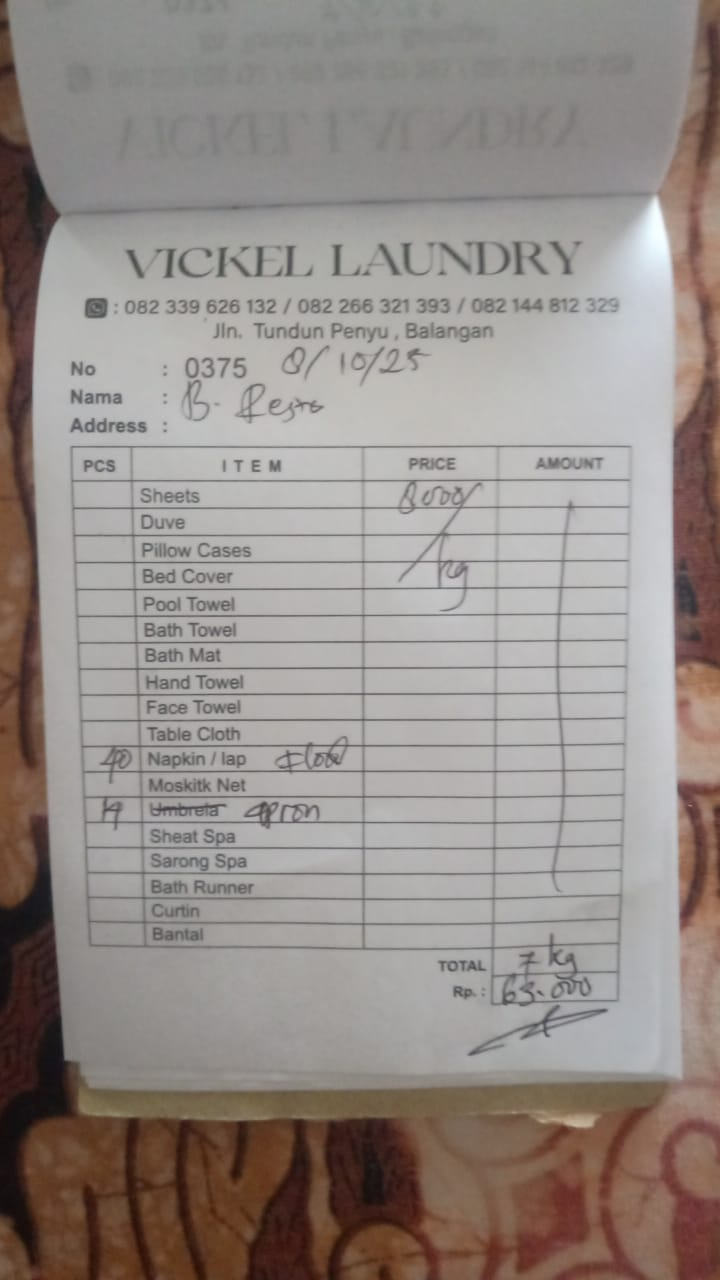 VICKEL LAUNDRY
: 082 339 626 132 / 082 266 321 393 / 082 144 812 329
Jln. Tundun Penyu , Balangan
No : 0375 8/10/25
Nama : B. Resto
Address :
PCS ITEM PRICE AMOUNT
Sheets 8000/
Duve
Pillow Cases kg
Bed Cover
Pool Towel
Bath Towel
Bath Mat
Hand Towel
Face Towel
Table Cloth
40 Napkin / lap
Moskitk Net
14 Umbrela apron
Sheat Spa
Sarong Spa
Bath Runner
Curtin
Bantal
TOTAL 7 kg
Rp. : 63.000